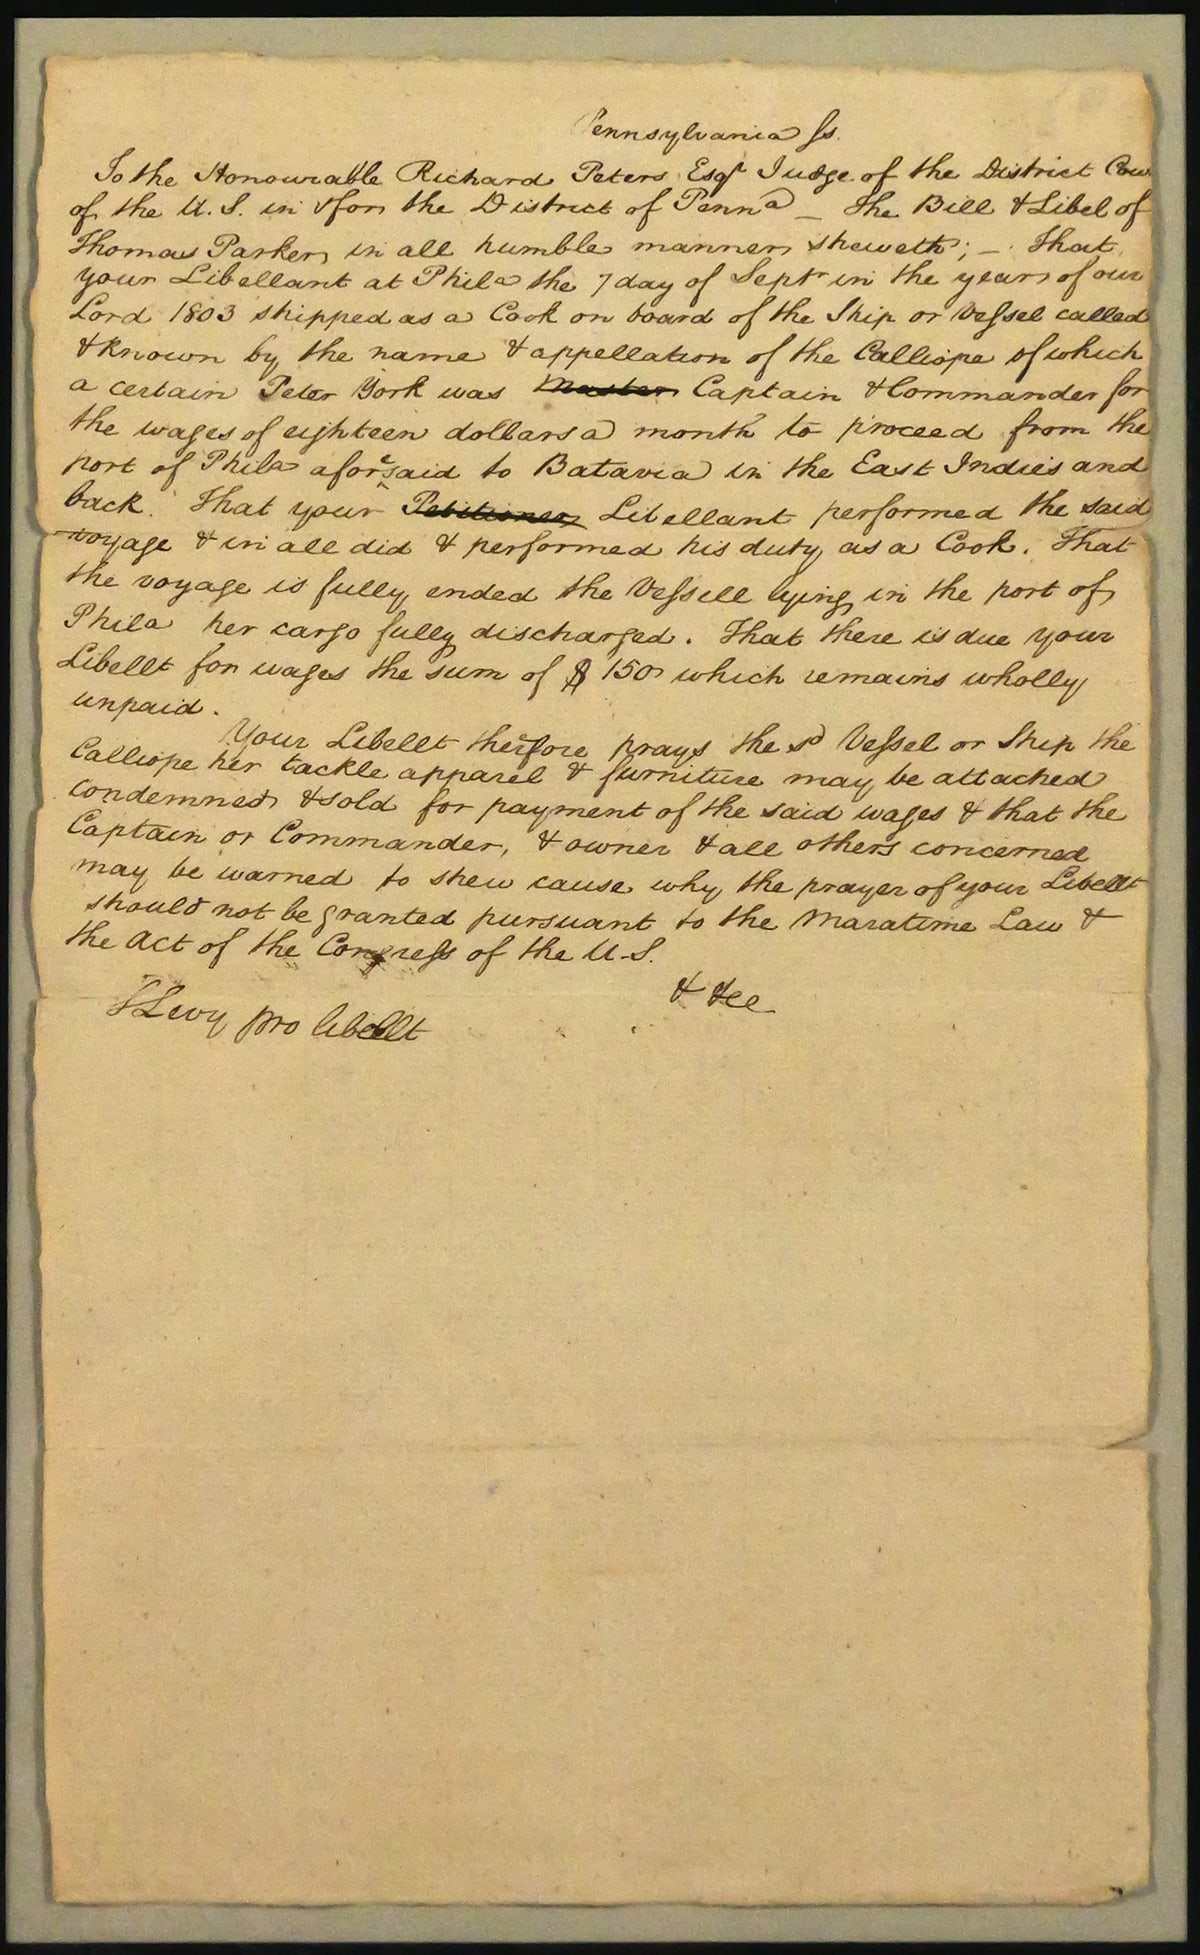 Pennsylvania ss.
To the Honourable Richard Peters Esqr Judge of the District Cou
of the U. S. in & for the District of Penna — The Bill & Libel of
Thomas Parker in all humble manner sheweth; — That
your Libellant at Phila the 7 day of Septr in the year of our
Lord 1803 shipped as a Cook on board of the Ship or Vessel called
& known by the name & appellation of the Calliope of which
a certain Peter York was Master Captain & Commander for
the wages of eighteen dollars a month to proceed from the
port of Phila aforesaid to Batavia in the East Indies and
back. That your Petitioner Libellant performed the said
voyage & in all did & performed his duty as a Cook. That
the voyage is fully ended the Vessell lying in the port of
Phila her cargo fully discharged. That there is due your
Libellt for wages the sum of $ 150 which remains wholly
unpaid.
Your Libellt therefore prays the sd Vessel or Ship the
Calliope her tackle apparel & furniture may be attached
condemned & sold for payment of the said wages & that the
Captain or Commander, & owner & all others concerned
may be warned to shew cause why the prayer of your Libellt
should not be granted pursuant to the Maratime Law &
the Act of the Congress of the U. S.
& &c
S Levy pro libellt